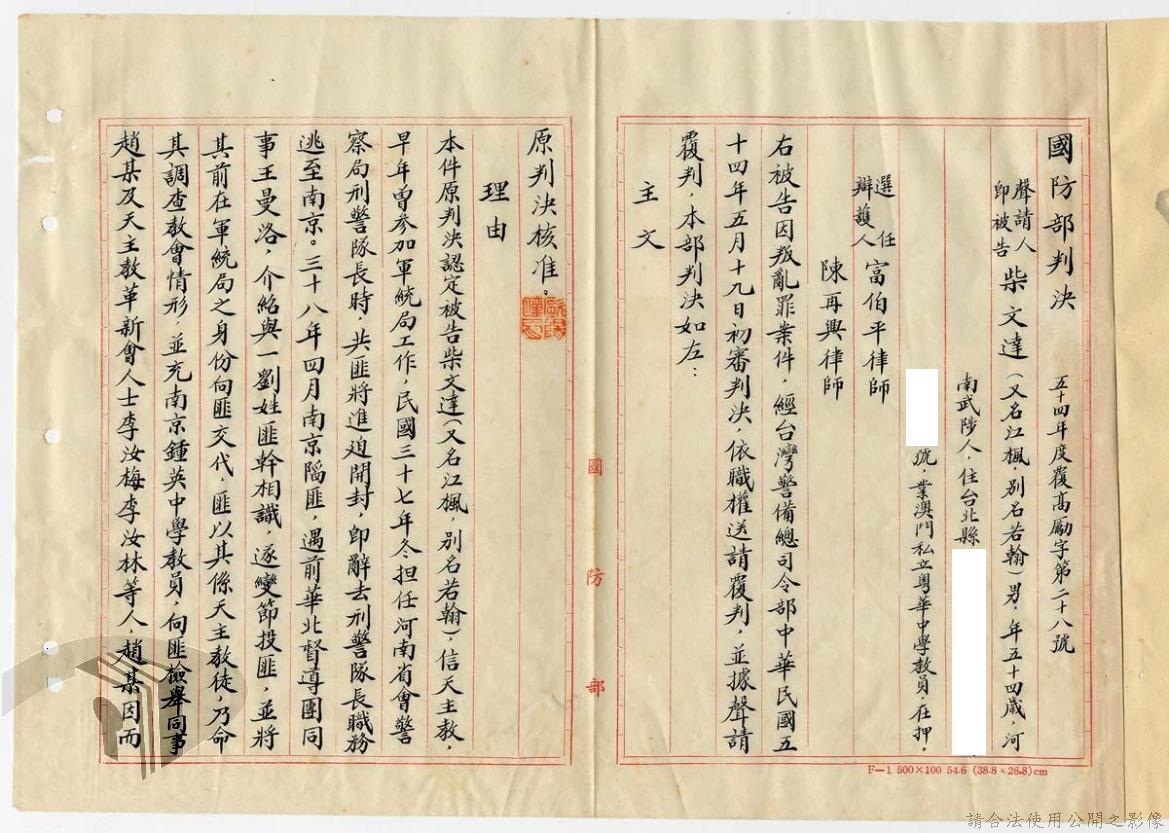 國防部判決
五十四年度覆高勵字第二十八號
聲請人
即被告
柴文達（又名江楓，別名若翰）男，年五十四歲，河
南武陟人，住台北縣
號，業澳門私立粵華中學教員，在押。
選任
辯護人
富伯平律師
陳再興律師
右被告因叛亂罪案件，經台灣警備總司令部中華民國五
十四年五月十九日初審判決，依職權送請覆判，並據聲請
覆判，本部判決如左：
主文
原判決核准。
理由
本件原判決認定被告柴文達（又名江楓，別名若翰），信天主教，
早年曾參加軍統局工作，民國三十七年冬担任河南省會警
察局刑警隊長時，共匪將進迫開封，即辭去刑警隊長職務
逃至南京。三十八年四月南京陷匪，遇前華北督導團同
事王曼洛，介紹與一劉姓匪幹相識，遂變節投匪，並將
其前在軍統局之身份向匪交代，匪以其係天主教徒，乃命
其調查教會情形，並充南京鍾英中學教員，向匪檢舉同事
趙某及天主教革新會人士李汝梅李汝林等人，趙某因而
國防部
F—1 500×100 54.6 (38.8×26.8)cm
請合法使用公開之影像